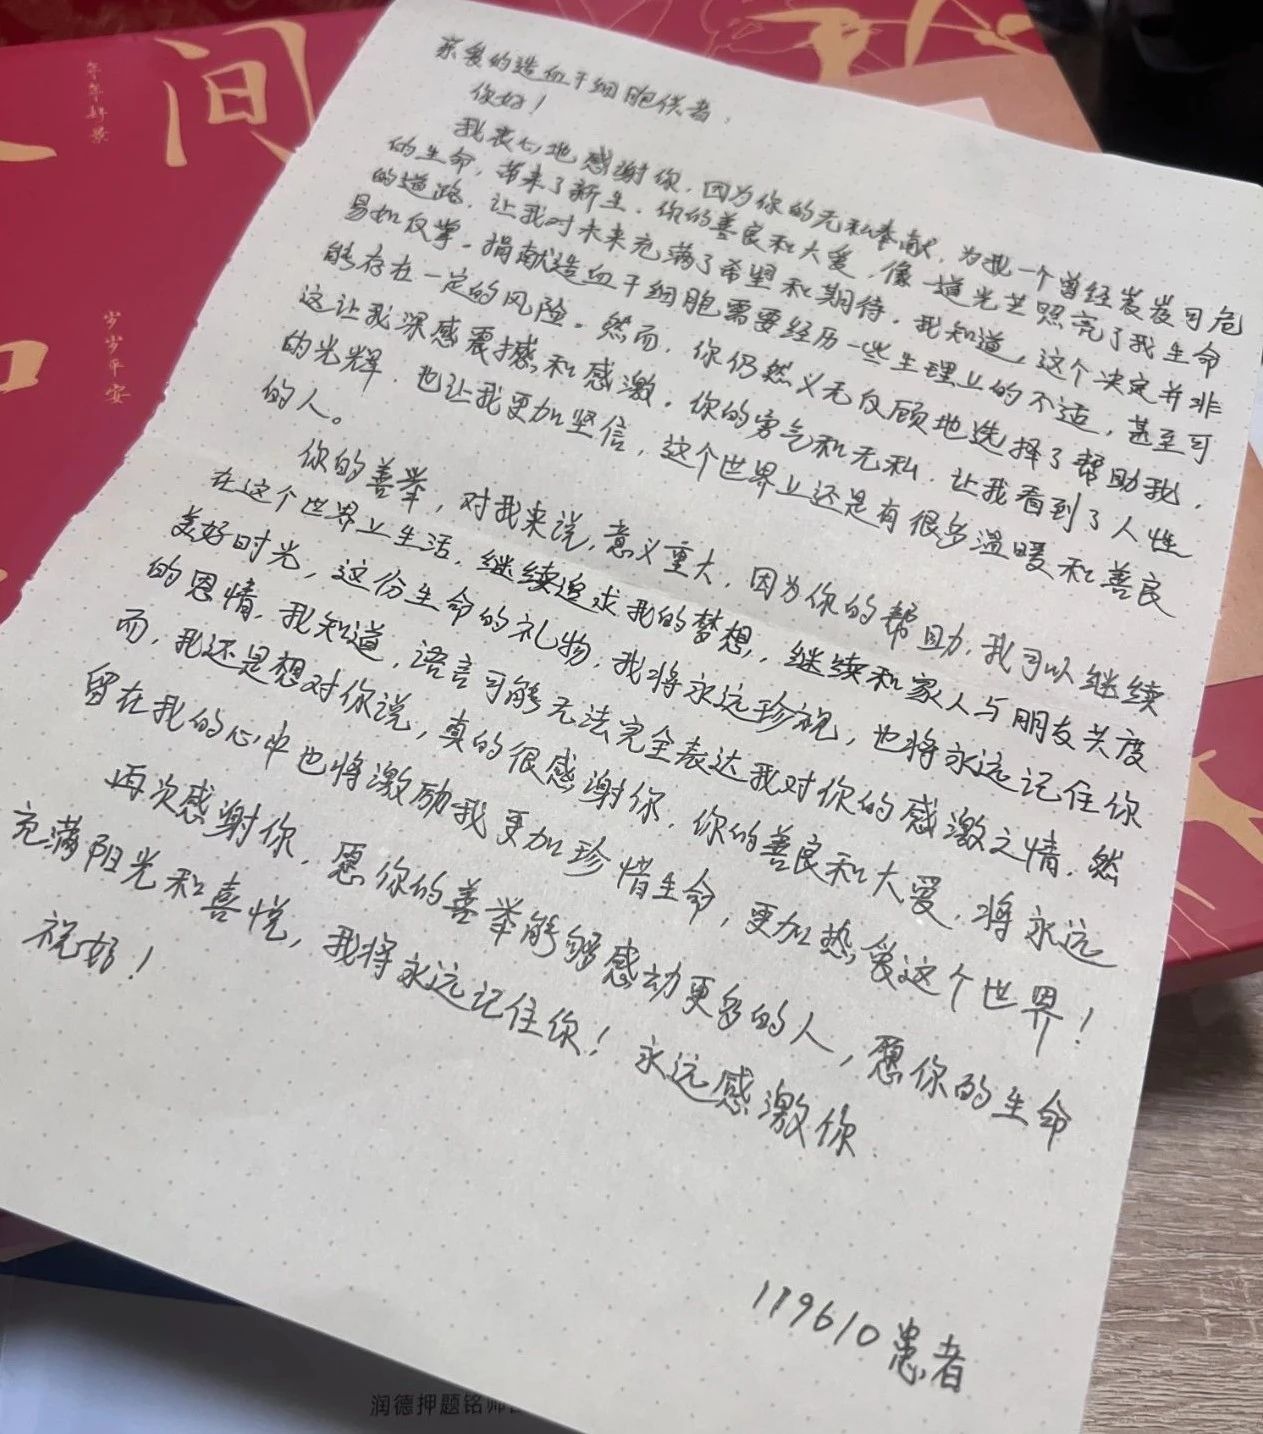 亲爱的造血干细胞供者：
你好！
我衷心地感谢你，因为你的无私奉献，为我一个曾经岌岌可危
的生命，带来了新生，你的善良和大爱，像一道光芒照亮了我生命
的道路，让我对未来充满了希望和期待。我知道，这个决定并非
易如反掌，捐献造血干细胞需要经历一些生理上的不适，甚至可
能存在一定的风险。然而，你仍然义无反顾地选择了帮助我，
这让我深感震撼和感激。你的勇气和无私，让我看到了人性
的光辉，也让我更加坚信，这个世界上还是有很多温暖和善良
的人。
你的善举，对我来说，意义重大，因为你的帮助，我可以继续
在这个世界上生活，继续追求我的梦想，继续和家人与朋友共度
美好时光，这份生命的礼物，我将永远珍视，也将永远记住你
的恩情，我知道，语言可能无法完全表达我对你的感激之情，然
而，我还是想对你说，真的很感谢你，你的善良和大爱，将永远
留在我的心中也将激励我更加珍惜生命，更加热爱这个世界！
再次感谢你，愿你的善举能够感动更多的人，愿你的生命
充满阳光和喜悦，我将永远记住你！永远感激你
祝好！
119610患者
间
年年好景
岁岁平安
润德押题铭师